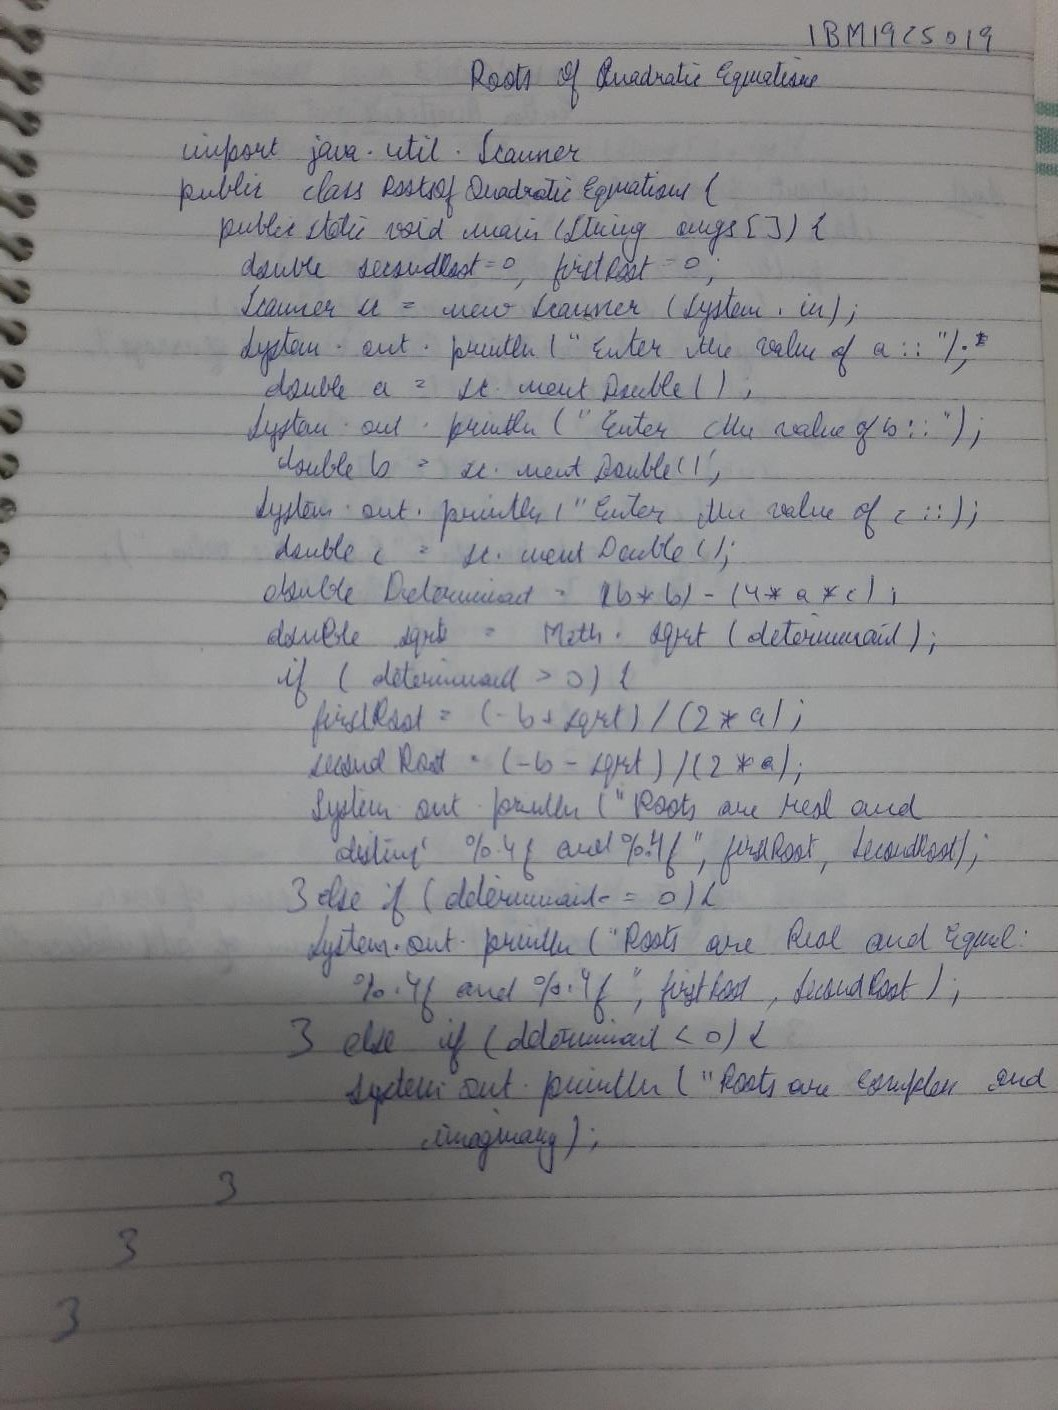 1BM19CS019
Roots Of Quadratic Equations
import java.util.Scanner
public class RootsOfQuadraticEquations {
public static void main (String args[]) {
double secondRoot=0, firstRoot=0;
Scanner sc = new Scanner (System.in);
System.out.println ("Enter the value of a::");
double a = sc.nextDouble();
System.out.println ("Enter the value of b::");
double b = sc.nextDouble();
System.out.println ("Enter the value of c ::);
double c = sc.nextDouble();
double Determinant = (b*b) - (4*a*c);
double sqrt = Math.sqrt (determinant);
if (determinant > 0) {
firstRoot = (-b + sqrt) / (2*a);
secondRoot = (-b - sqrt) / (2*a);
System out.println ("Roots are real and
distinct %.4f and %.4f", firstRoot, SecondRoot);
} else if (determinant == 0) {
System.out.println ("Roots are Real and Equal:
%.4f and %.4f", firstRoot, SecondRoot);
} else if (determinant < 0) {
System out.println ("Roots are complex and
imaginary);
}
}
}